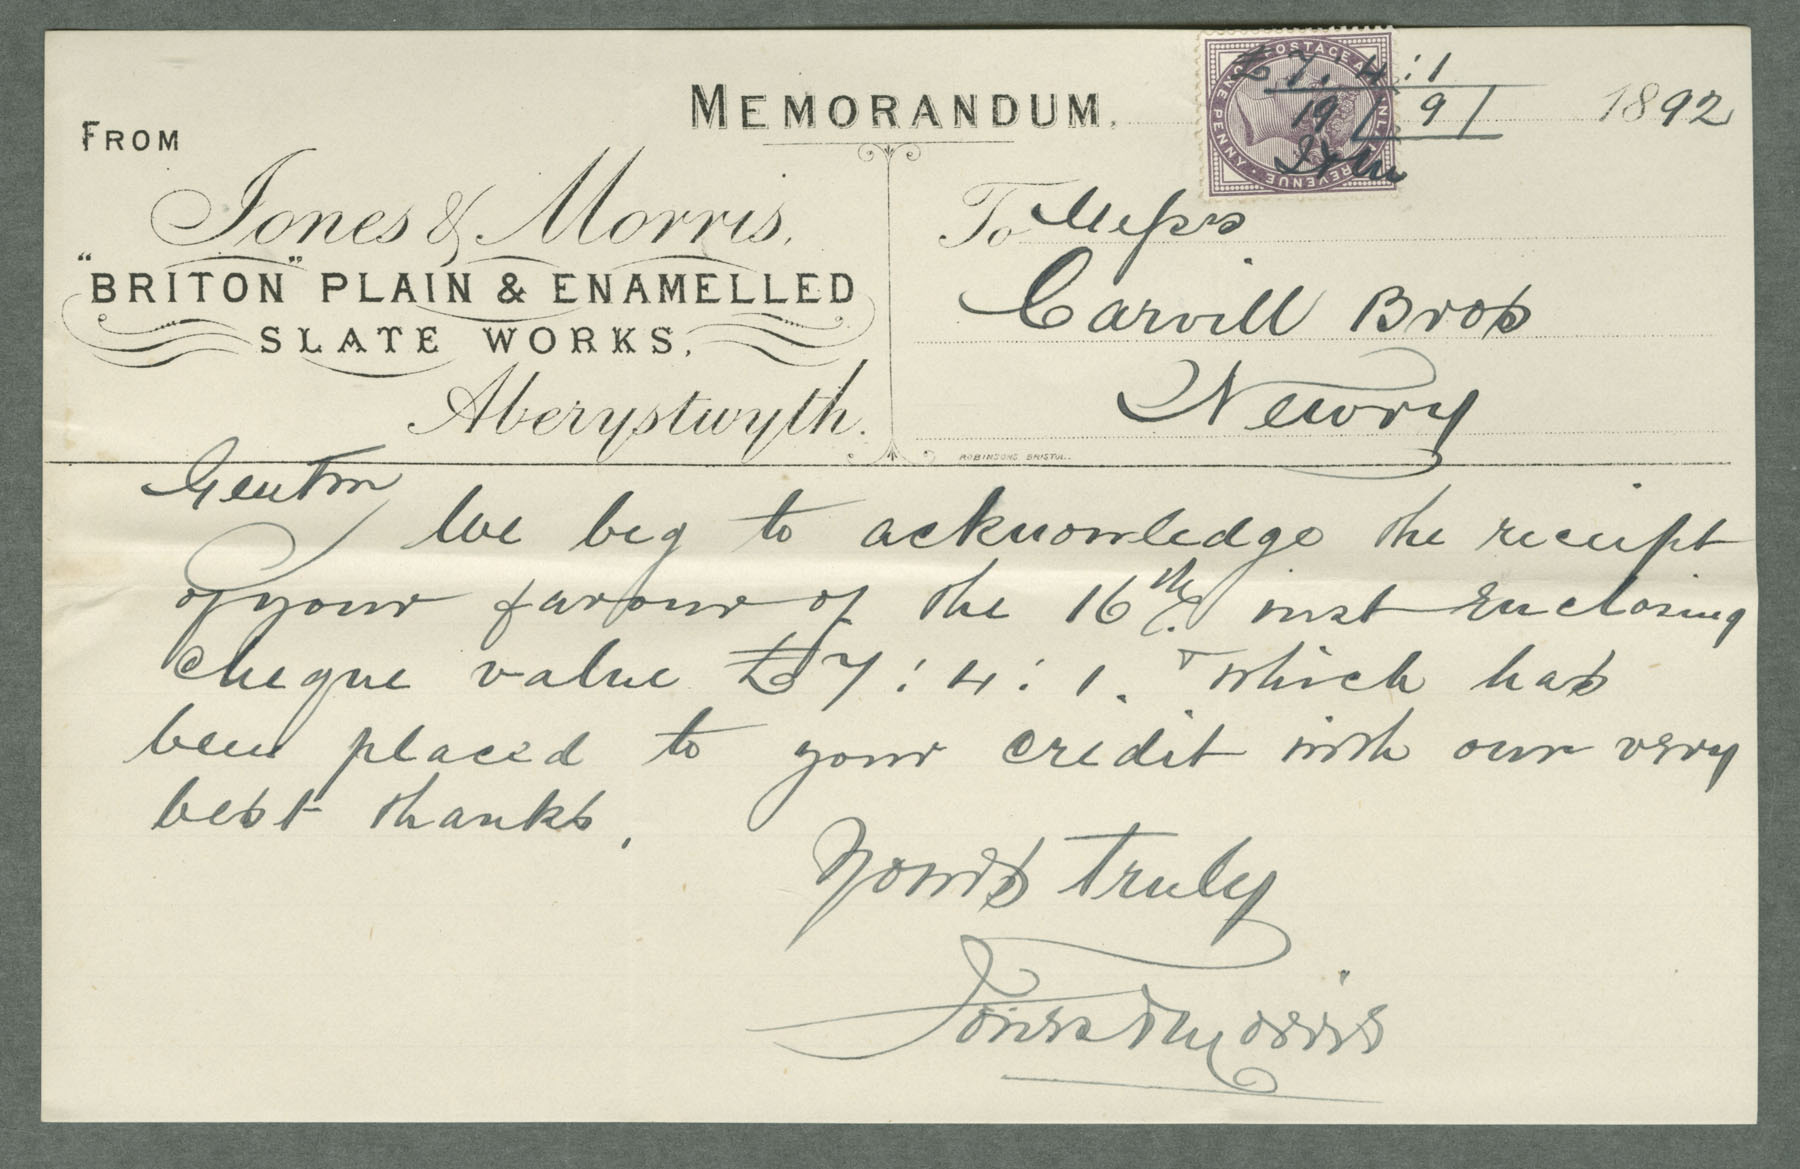 MEMORANDUM.
£7 : 4 : 1
19 / 9 /
1892
POSTAGE AND INLAND REVENUE
ONE PENNY
FROM
Jones & Morris,
"BRITON" PLAIN & ENAMELLED
SLATE WORKS,
Aberystwyth.
To Messrs
Carvill Bros
Newry
ROBINSONS BRISTOL.
Gentm
We beg to acknowledge the receipt
of your favour of the 16th inst Enclosing
cheque value £7 : 4 : 1. which has
been placed to your credit with our very
best thanks.
Yours truly
Jones & Morris